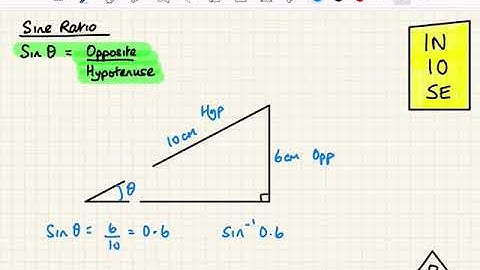 Sine Ratio
Sin θ = Opposite
Hypotenuse
IN
10
SE
Hyp
10cm
6cm Opp
θ
Sin θ = 6/10 = 0.6
Sin⁻¹ 0.6